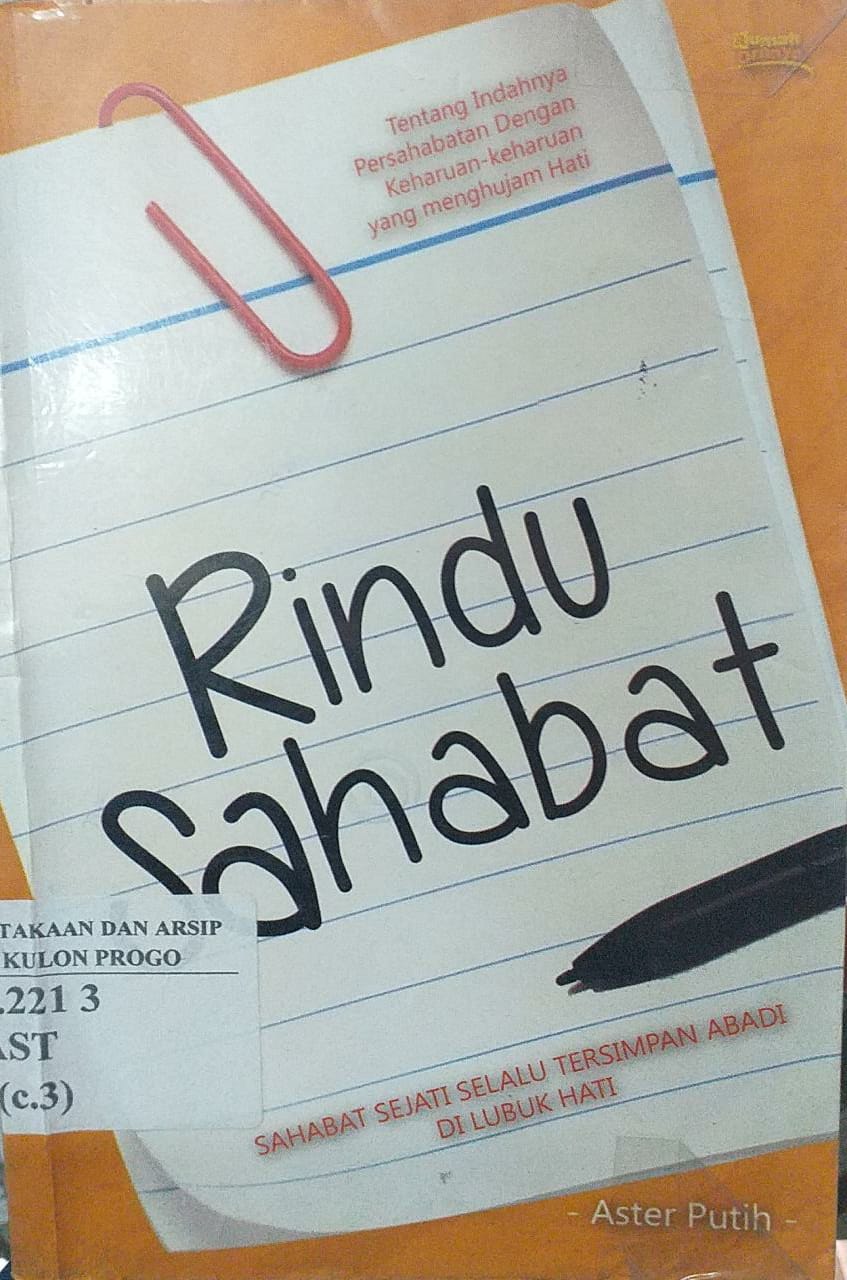 Tentang Indahnya
Persahabatan Dengan
Keharuan-keharuan
yang menghujam Hati
Rindu
Sahabat
TAKAAN DAN ARSIP
KULON PROGO
.221 3
AST
(c.3)
SAHABAT SEJATI SELALU TERSIMPAN ABADI
DI LUBUK HATI
- Aster Putih -